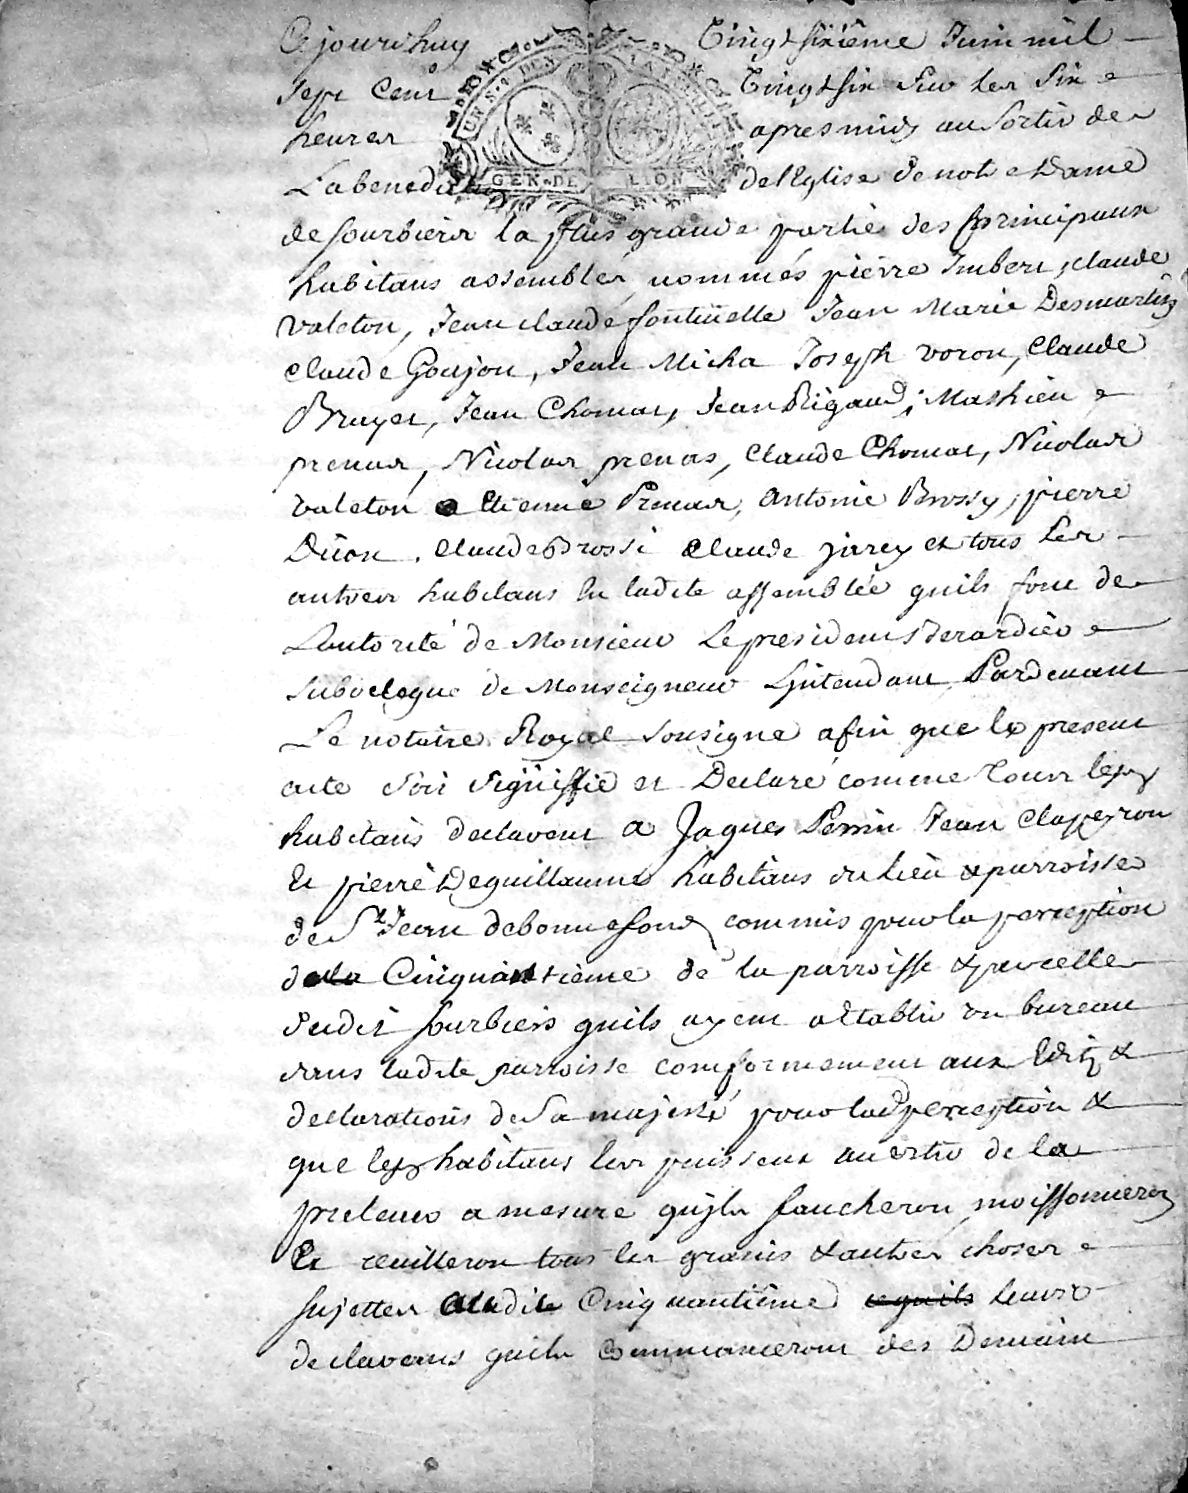 Cejourdhuy Vingt sixième Juin mil
sept Cent Vingt six sur les six
heures apres midy au sortir de
La benediction de l'Eglise de notre Dame
UN S. 4 DEN
GEN. DE LION
de sourbiers la plus grande partie des principaux
habitans assemblés, nommés pierre Imbert, claude
valeton, Jean claude fontinelle Jean Marie Desmartin
claude Goujon, Jean Micha Joseph voron, Claude
Bruyet, Jean Chomat, Jean Rigaud, Mathieu
prenas, Nicolas prenas, Claude Chomat, Nicolas
valeton Etienne Prenas, antoine Brossy, pierre
Duon, claude Brossi claude jarey et tous les
autres habitans en ladite assemblée quils font de
Lautorité de Monsieur Le president Berardier
subdelegué de Monseigneur Lintendant Pardevant
Le notaire Royal sousigné afin que le present
acte soit signiffié et Declaré comme lesd
habitans declarent a Jaques Perrin Jean Clapeyron
Et pierre Deguillaume habitans du lieu & parroisse
de St Jean debonnefond commis pour la perception
de la Cinquantieme de la parroisse & parcelle
dudit sourbiers quils ayent a établir un bureau
dans ladite parroisse conformement aux Edits &
declarations de Sa majesté pour lad perception &
que lesd habitans les puissent avertir de la
prelever a mesure quils faucheron, moissonneron
Et ceuilleron tous les grains & autres choses
sujettes a ladite Cinquantième leur
declarans quils commanceront des Demain